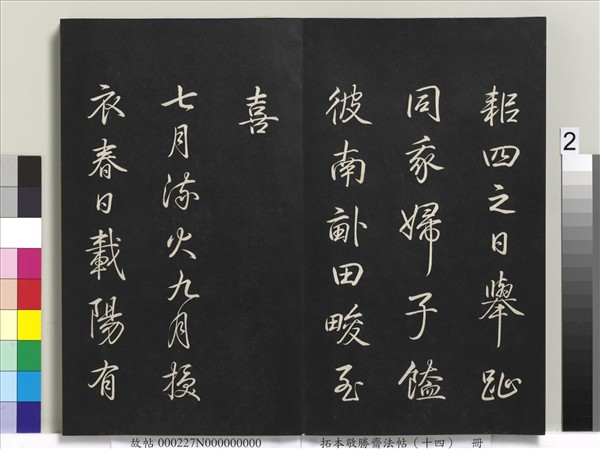 耜四之日舉趾
同我婦子饁
彼南畝田畯至
喜
七月流火九月授
衣春日載陽有
2
故帖 000227N000000000
拓本敬勝齋法帖（十四） 冊